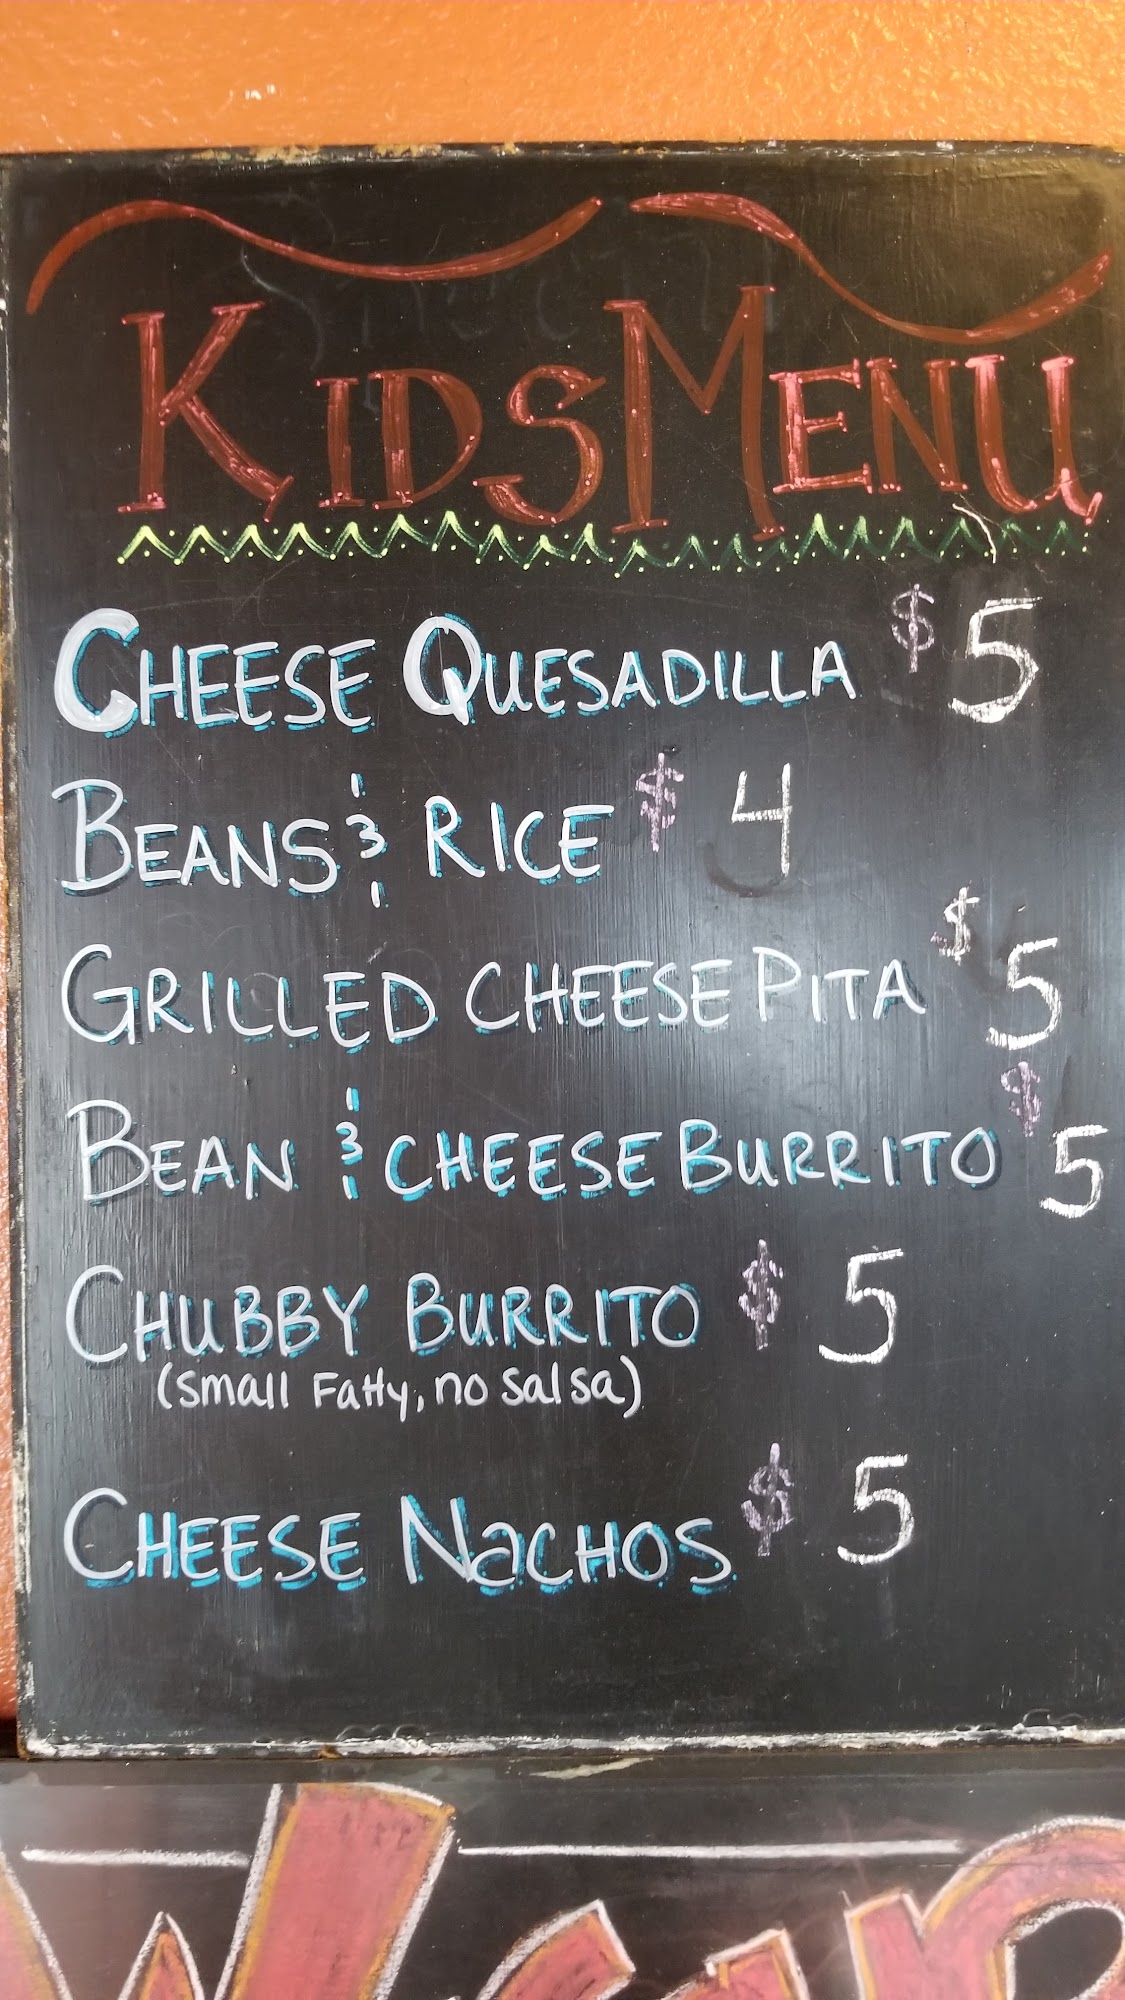 KIDS MENU
CHEESE QUESADILLA $5
BEANS & RICE $4
GRILLED CHEESE PITA $5
BEAN & CHEESE BURRITO $5
CHUBBY BURRITO $5
(small Fatty, no salsa)
CHEESE NaCHOS $5